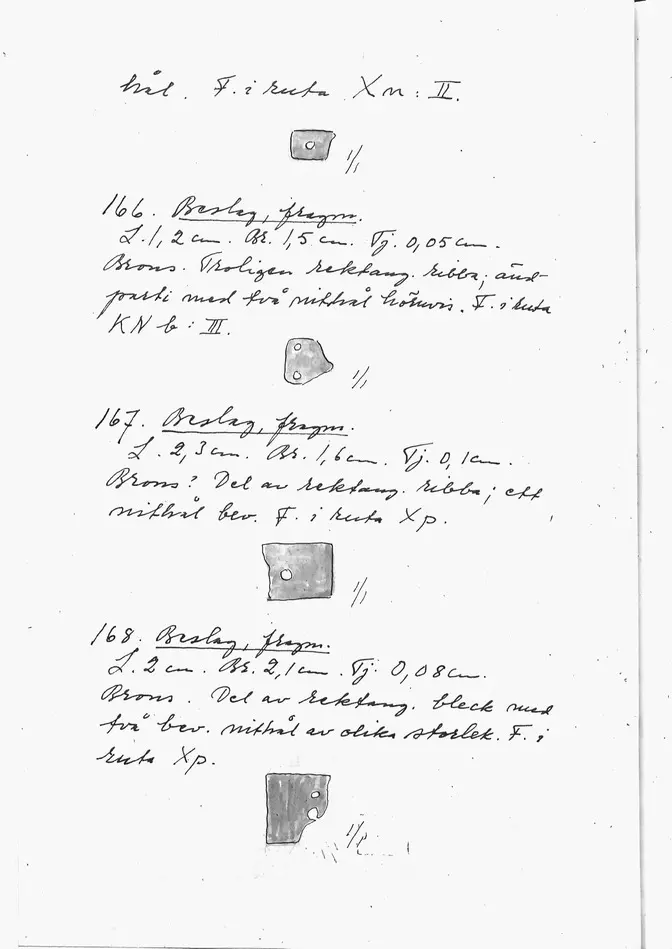 hål. F. i ruta Xn : II.
1/1
166. Beslag, fragm.
L. 1,2 cm. Br. 1,5 cm. Tj. 0,05 cm.
Brons. Troligen rektang. ribba; änd-
parti med två nithål hörnvis. F. i ruta
KN b : III.
1/1
167. Beslag, fragm.
L. 2,3 cm. Br. 1,6 cm. Tj. 0,1 cm.
Brons? Del av rektang. ribba; ett
nithål bev. F. i ruta Xp.
1/1
168. Beslag, fragm.
L. 2 cm. Br. 2,1 cm. Tj. 0,08 cm.
Brons. Del av rektang. bleck med
två bev. nithål av olika storlek. F. i
ruta Xp.
1/1